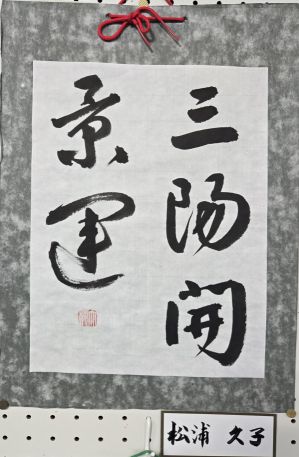 三陽開
景運
松浦 久子